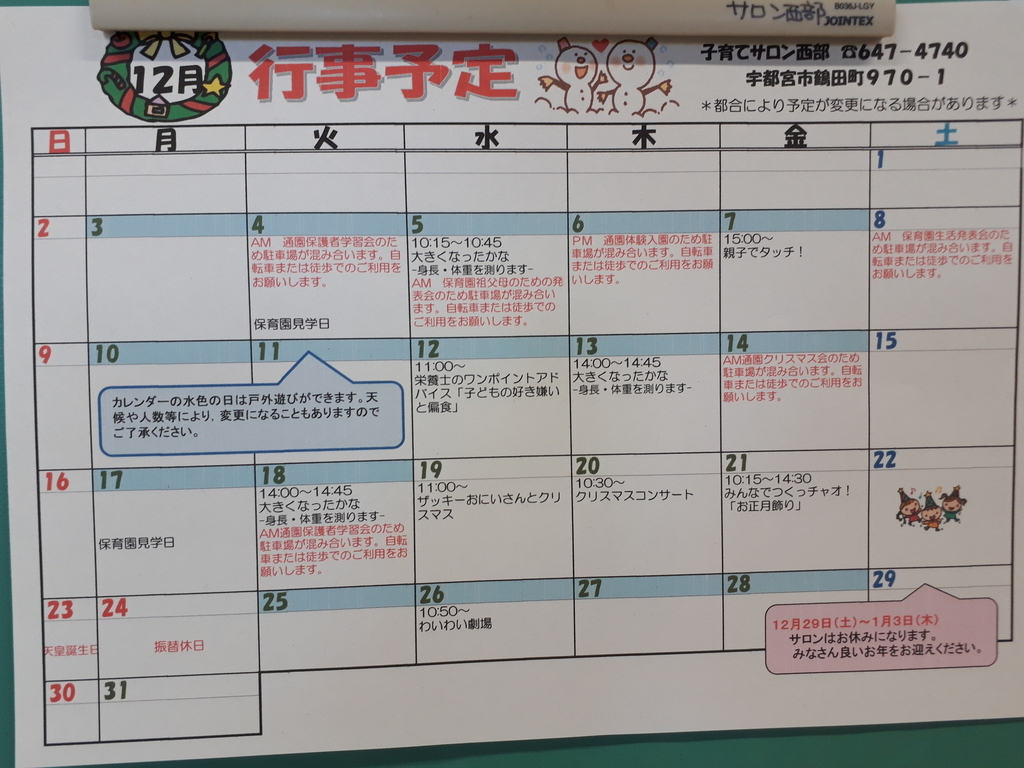 サロン西部
B036J-LGY
JOINTEX
12月
行事予定
子育てサロン西部 ☎647-4740
宇都宮市鶴田町970-1
＊都合により予定が変更になる場合があります＊
日 月 火 水 木 金 土
1
2 3 4 5 6 7 8
AM 通園保護者学習会のため駐車場が混み合います。自転車または徒歩でのご利用をお願いします。
保育園見学日
10:15～10:45
大きくなったかな
-身長・体重を測ります-
AM 保育園祖父母のための発表会のため駐車場が混み合います。自転車または徒歩でのご利用をお願いします。
PM 通園体験入園のため駐車場が混み合います。自転車または徒歩でのご利用をお願いします。
15:00～
親子でタッチ！
AM 保育園生活発表会のため駐車場が混み合います。自転車または徒歩でのご利用をお願いします。
9 10 11 12 13 14 15
カレンダーの水色の日は戸外遊びができます。天
候や人数等により，変更になることもありますので
ご了承ください。
11:00～
栄養士のワンポイントアド
バイス「子どもの好き嫌い
と偏食」
14:00～14:45
大きくなったかな
-身長・体重を測ります-
AM通園クリスマス会のため駐車場が混み合います。自転車または徒歩でのご利用をお願いします。
16 17 18 19 20 21 22
保育園見学日
14:00～14:45
大きくなったかな
-身長・体重を測ります-
AM通園保護者学習会のため駐車場が混み合います。自転車または徒歩でのご利用をお願いします。
11:00～
ザッキーおにいさんとクリ
スマス
10:30～
クリスマスコンサート
10:15～14:30
みんなでつくっチャオ！
「お正月飾り」
23 24 25 26 27 28 29
天皇誕生日
振替休日
10:50～
わいわい劇場
12月29日（土）～1月3日（木）
サロンはお休みになります。
みなさん良いお年をお迎えください。
30 31